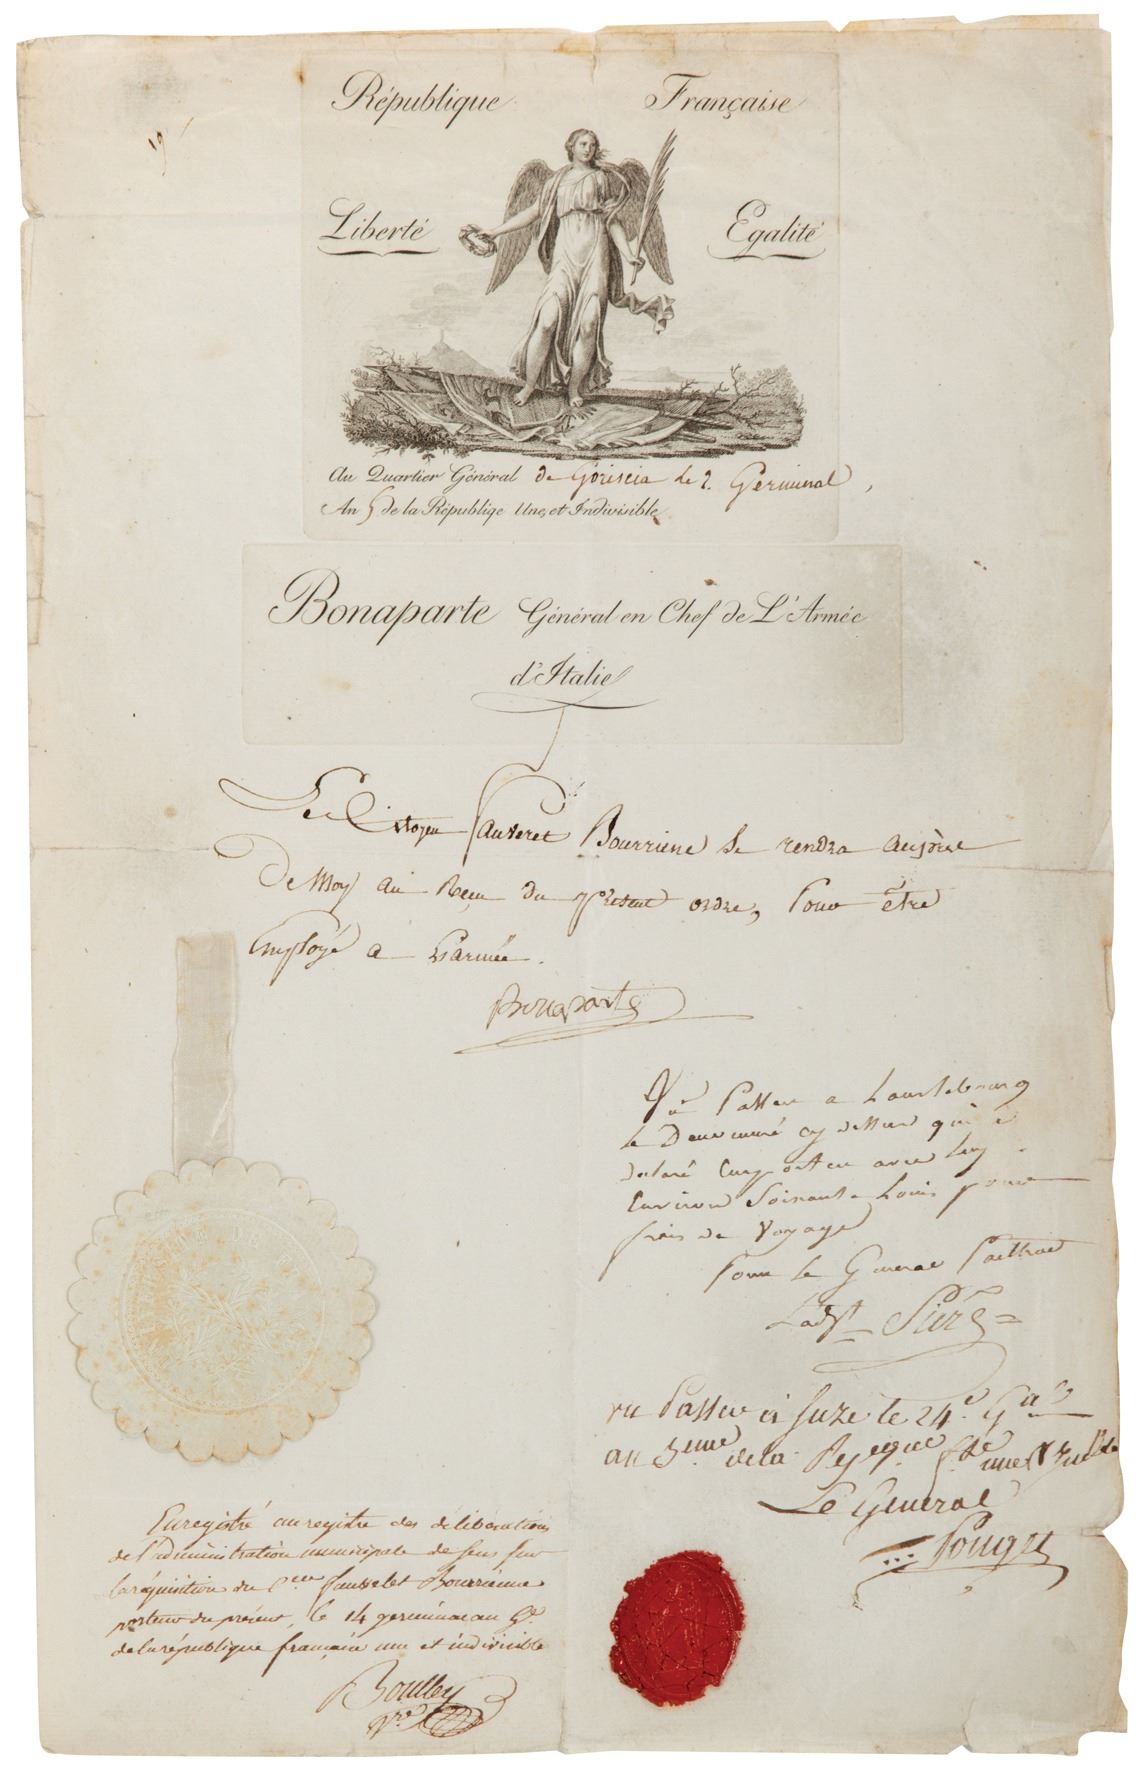 19
République Française
Liberté Egalité
Au Quartier Général de Goriscia le 2. Germinal,
An 5 de la Républiqe Une, et Indivisible
Bonaparte Général en Chef de L'Armée
d'Italie
Le Citoyen Fauveret Bourriene se rendra auprès
De Moy au Reçu du présent ordre, Pour être
Employé a L'armée.
Bonaparte
Vu Passer a
le Denommé cy dessus qui a
declaré Emporter avec luy
Environ Soixante Louis pour
frais de Voyage
Pour le General
L'adjt
vu Passer à Suze le 24e. Gal
an 5eme de la une &
Le General
Pouget
Enregistré au registre des délibérations
de l'administration municipale de Sens sur
la réquisition du Cen Fauvelet Bourrienne
porteur du présent, le 14 germinal an 5e
de la république française une et indivisible
Boulley